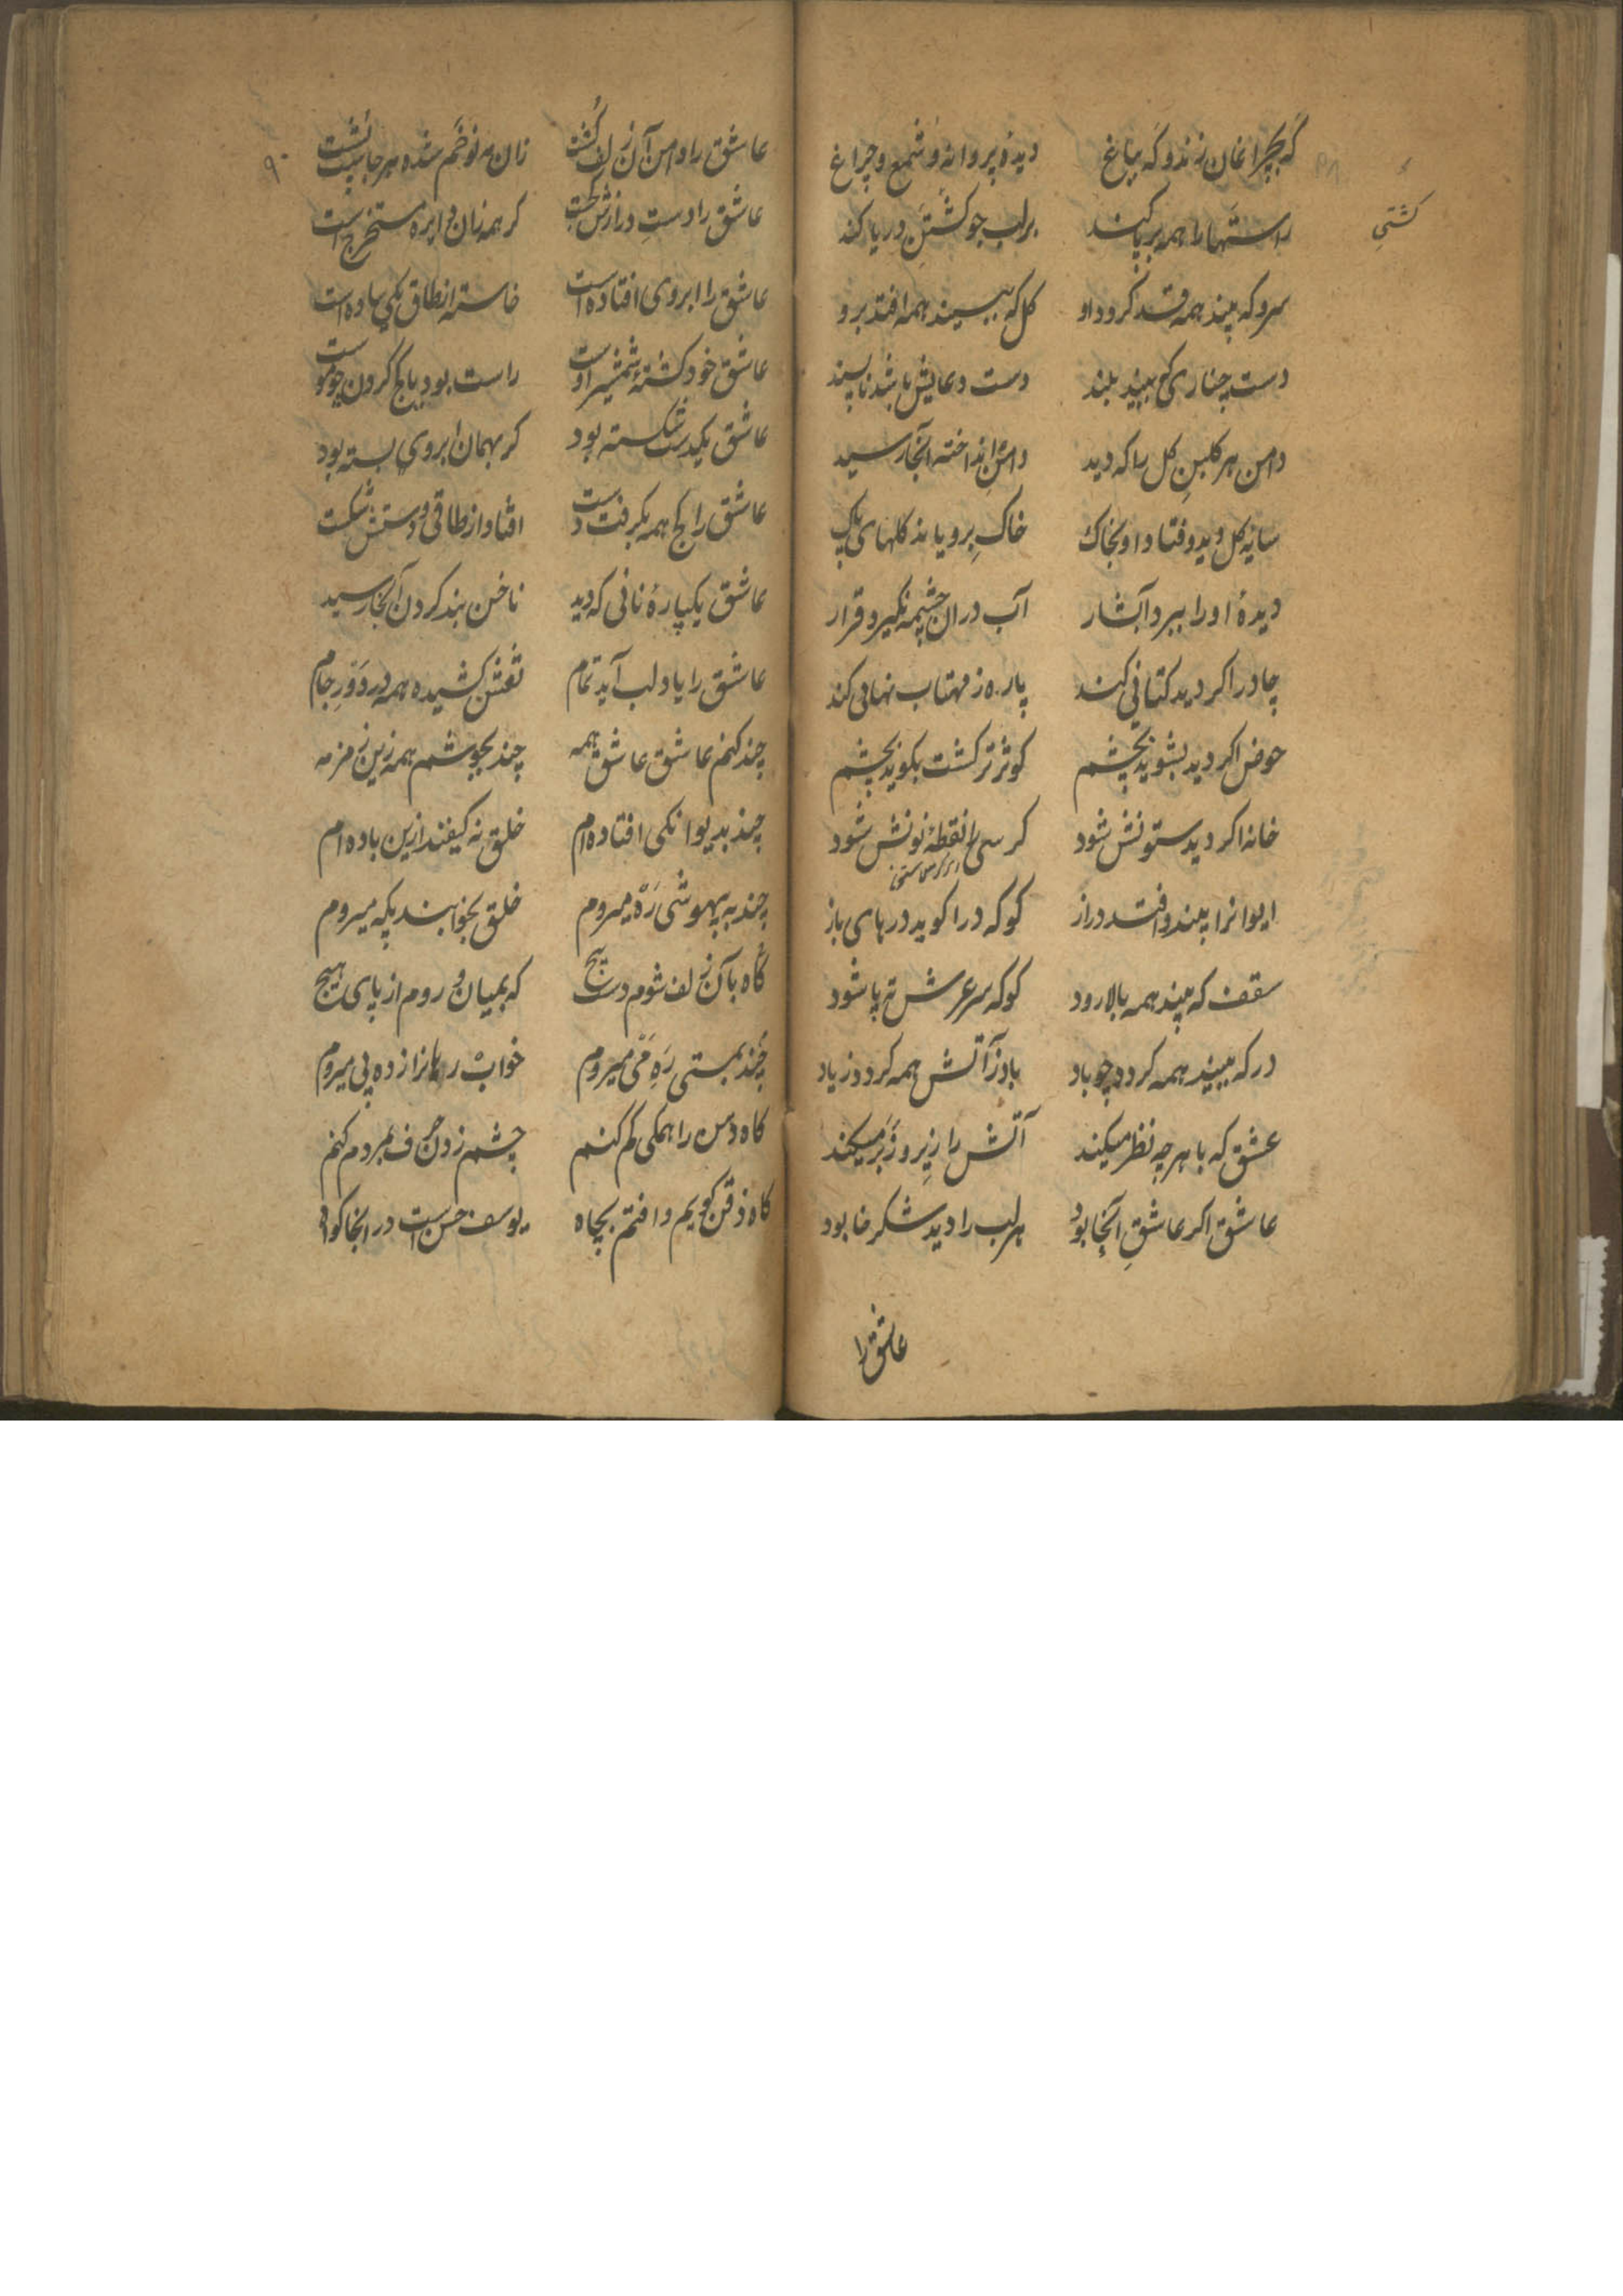 گه بچراغان زند و گه بباغ دیدهٔ پروانه و شمع و چراغ
راستها را همه برپا کند بر لب جو کشتی دریا کند
کشتی
سرو که بیند همه قد گردد او گل که ببیند همه افتد برو
دست چناری که ببیند بلند دست دعایش باشد ناپسند
دامن هر گلبن گل را که دید دامن انداخته آنجا رسید
سایهٔ گل دید و فتاد او بخاک خاک برویاند گلهای پاک
دیدهٔ او را ببرد آبشار آب در ان چشمه نگیرد قرار
چادر اکر دید کتانی کند پاره ز مهتاب نهانی کند
حوض اکر دید بشوید بچشم کوثر تر کشت بکوید بچشم
خانه اکر دید ستونش شود کرسی را نقطهٔ نونش شود
ایوانرا بیند و افتد دراز کو که درا کوید درهای باز
سقف که بیند همه بالا رود کو که سر عرش ته پا شود
در که ببیند همه کردد چو باد باد ز آتش همه کردد زیاد
عشق که با هر چه نظر میکند آتش را زیر و زبر میکند
عاشق اکر عاشقِ آنجا بود هر لب را دید شکرخا بود
عاشق را
۹۰
عاشق را دامن آن زلف کشت زان مه نو خم شده هر جا پشت
عاشق را دستِ دراز کر همه زان دایره مستخرج است
عاشق را ابروی افتاده است خاسته از طاق یکی ساده است
عاشق خود کشتهٔ شمشیر اوست راست بود با کج کردن چو موست
عاشق یکدست شکسته بود کر بهمان ابروی بسته بود
عاشق را کج همه بکرفت دست افتاد از طاقی و دستش شکست
عاشق یکپارهٔ نانی که دید ناخن بند کردن آنجا رسید
عاشق را یاد لب آید تمام نقش کشیده همه در دَورِ جام
چند کنم عاشق عاشق همه چند بجوشم همه زین زمزمه
چند بدیوانکی افتاده ام خلق نه کیفند ازین باده ام
چند به بیهوشی رَه میروم خلق بخوابند بکه میروم
گاه بآن زلف شوم دست پیچ که بمیان و روم از پای هیچ
چند بمستی رَهِ می میروم خواب رهانرا زده پی میروم
کاه دهن را همکی کم کنم چشم زدن حرف بمردم کنم
کاه ذقن کویم و افتم بچاه یوسف حسن است در انجا کواه